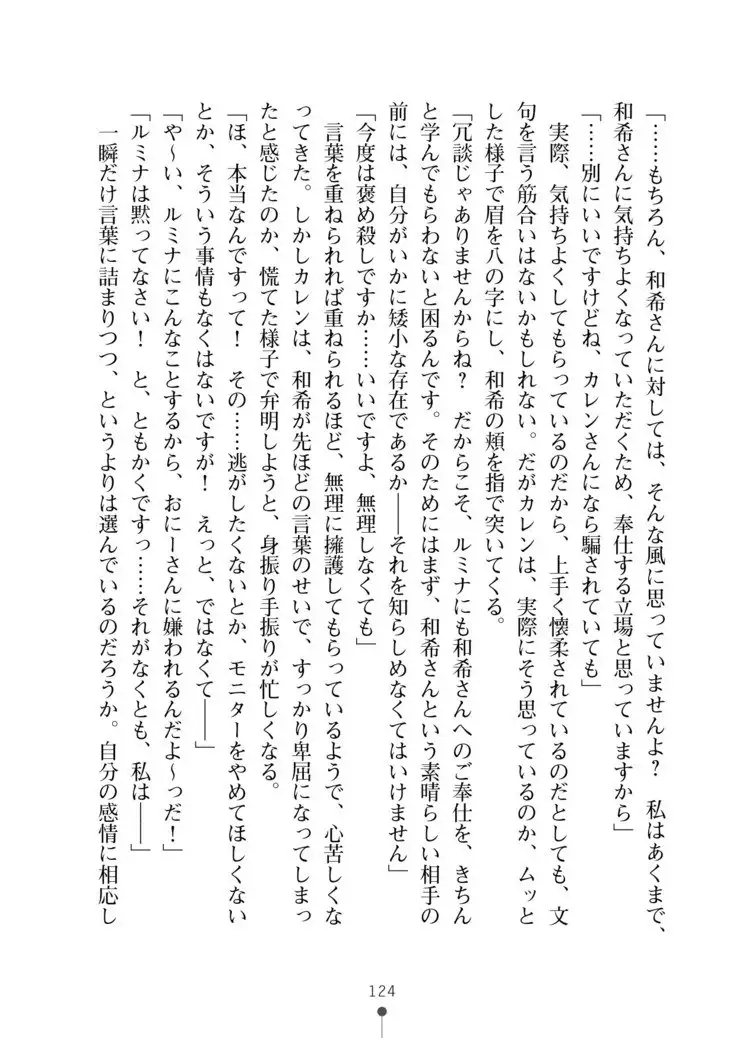 「……もちろん、和希さんに対しては、そんな風に思っていませんよ？　私はあくまで、
和希さんに気持ちよくなっていただくため、奉仕する立場と思っていますから」
「……別にいいですけどね、カレンさんになら騙されていても」
　実際、気持ちよくしてもらっているのだから、上手く懐柔されているのだとしても、文
句を言う筋合いはないかもしれない。だがカレンは、実際にそう思っているのか、ムッと
した様子で眉を八の字にし、和希の頬を指で突いてくる。
「冗談じゃありませんからね？　だからこそ、ルミナにも和希さんへのご奉仕を、きちん
と学んでもらわないと困るんです。そのためにはまず、和希さんという素晴らしい相手の
前には、自分がいかに矮小な存在であるか――それを知らしめなくてはいけません」
「今度は褒め殺しですか……いいですよ、無理しなくても」
　言葉を重ねられれば重ねられるほど、無理に擁護してもらっているようで、心苦しくな
ってきた。しかしカレンは、和希が先ほどの言葉のせいで、すっかり卑屈になってしまっ
たと感じたのか、慌てた様子で弁明しようと、身振り手振りが忙しくなる。
「ほ、本当なんですって！　その……逃がしたくないとか、モニターをやめてほしくない
とか、そういう事情もなくはないですが！　えっと、ではなくて――」
「や～い、ルミナにこんなことするから、おにーさんに嫌われるんだよ～っだ！」
「ルミナは黙ってなさい！　と、ともかくですっ……それがなくとも、私は――」
　一瞬だけ言葉に詰まりつつ、というよりは選んでいるのだろうか。自分の感情に相応し
124